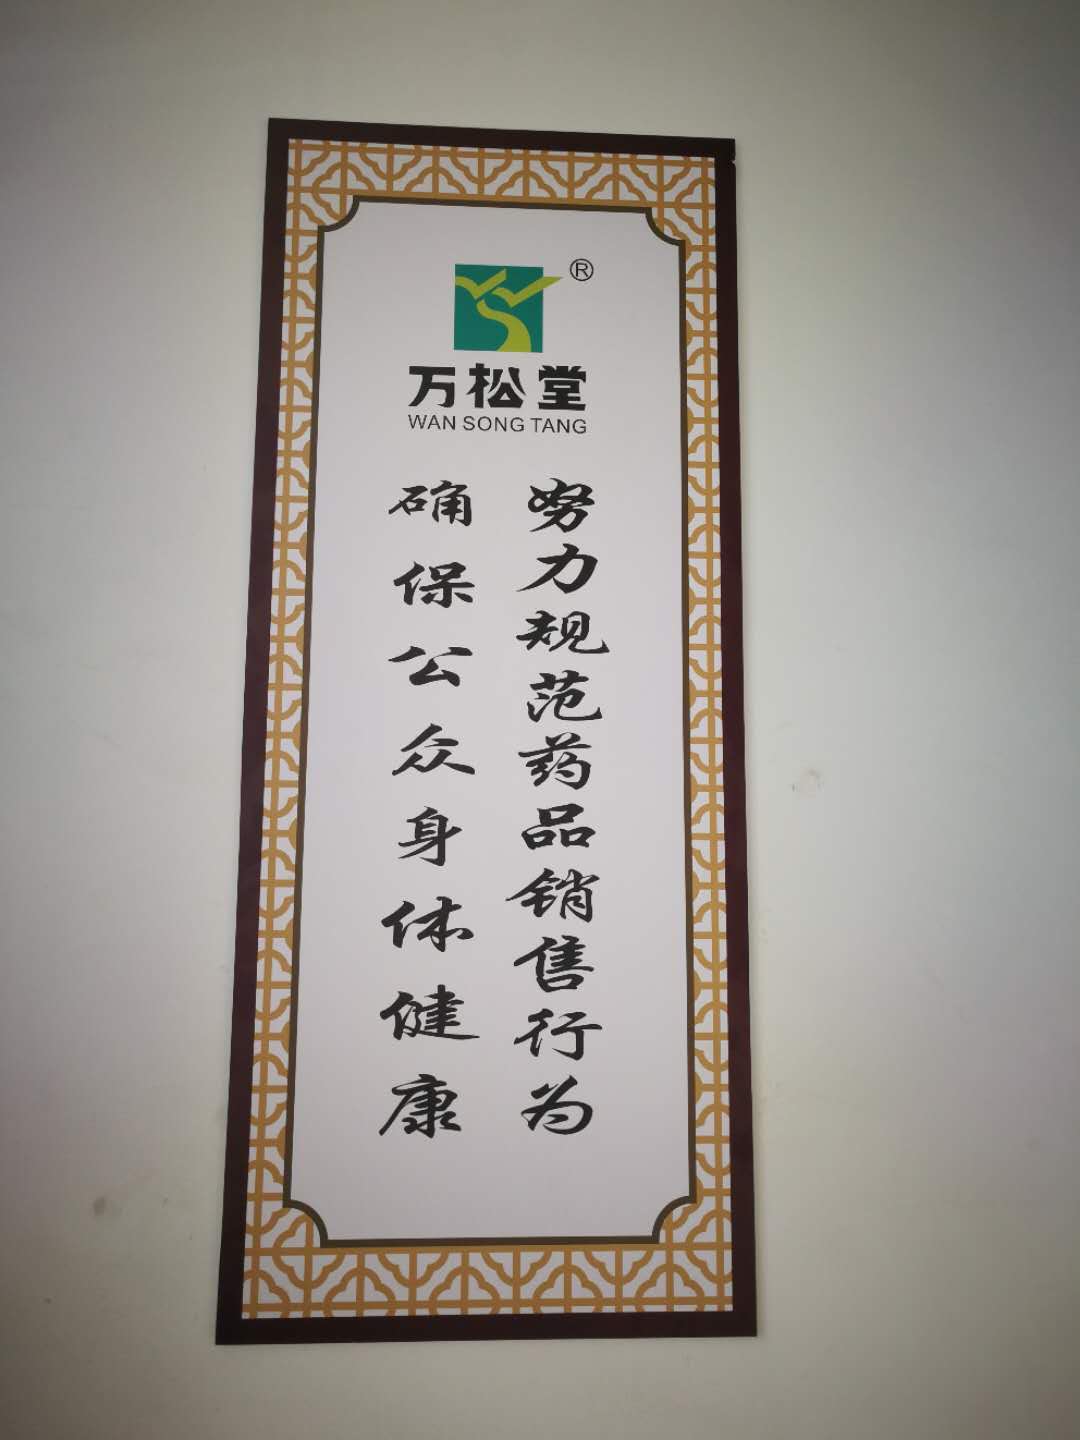 ®
万松堂
WAN SONG TANG
努力规范药品销售行为
确保公众身体健康